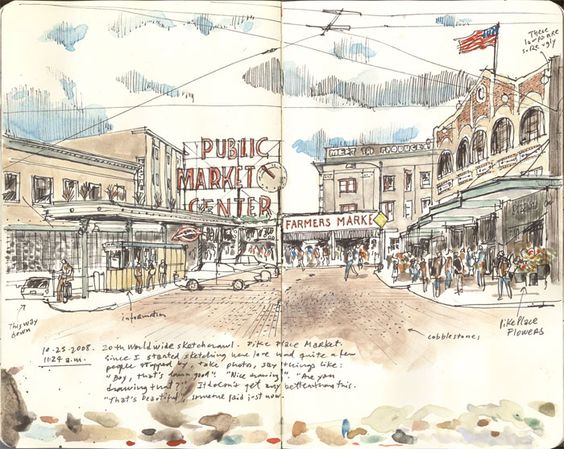 These
are
ugly
PUBLIC
MARKET
CENTER
MEET THE PRODUCER
FARMERS MARKET
This way
down
information
cobblestones
Pike Place
FLOWERS
10-25-2008.
11:24 a.m.
20th Worldwide sketchcrawl. Pike Place Market.
Since I started sketching here I've had quite a few
people stopped by, take photo, say things like:
"Boy, that's damn good". "Nice drawing". "Are you
drawing that?" It doesn't get any better than this.
"That's beautiful", someone said just now.